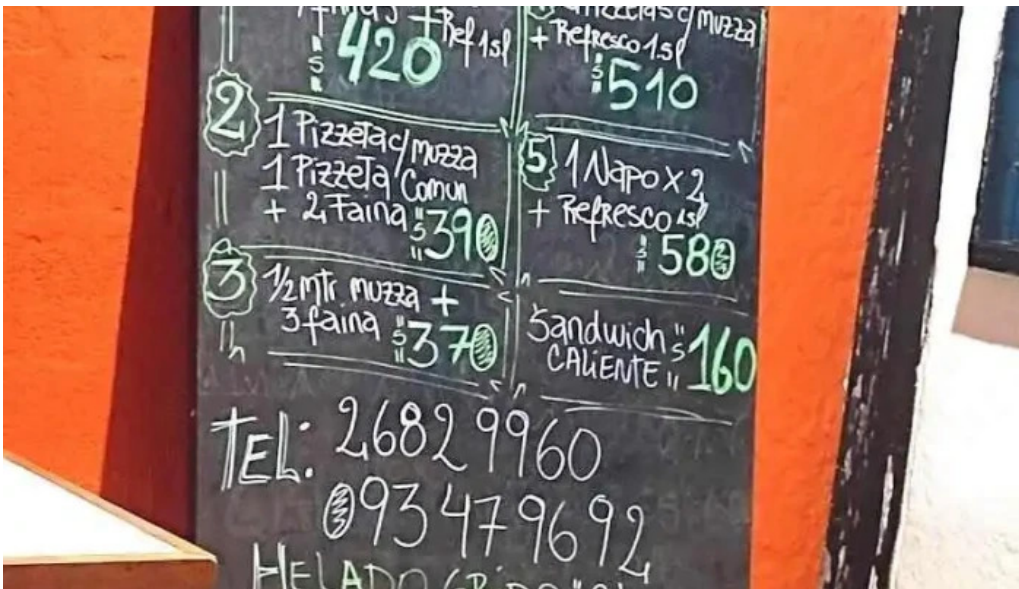 + Ref 1.5l
$ 420
2
1 Pizzeta c/ muzza
1 Pizzeta Comun
+ 2 Faina $ 390
3
1/2 mtr muzza +
3 faina $ 370
c/ muzza
+ Refresco 1.5l
$ 510
5
1 Napo x 2
+ Refresco 1.5l
$ 580
Sandwich $ 160
CALIENTE
TEL: 2682 9960
093 47 96 92
HELADO